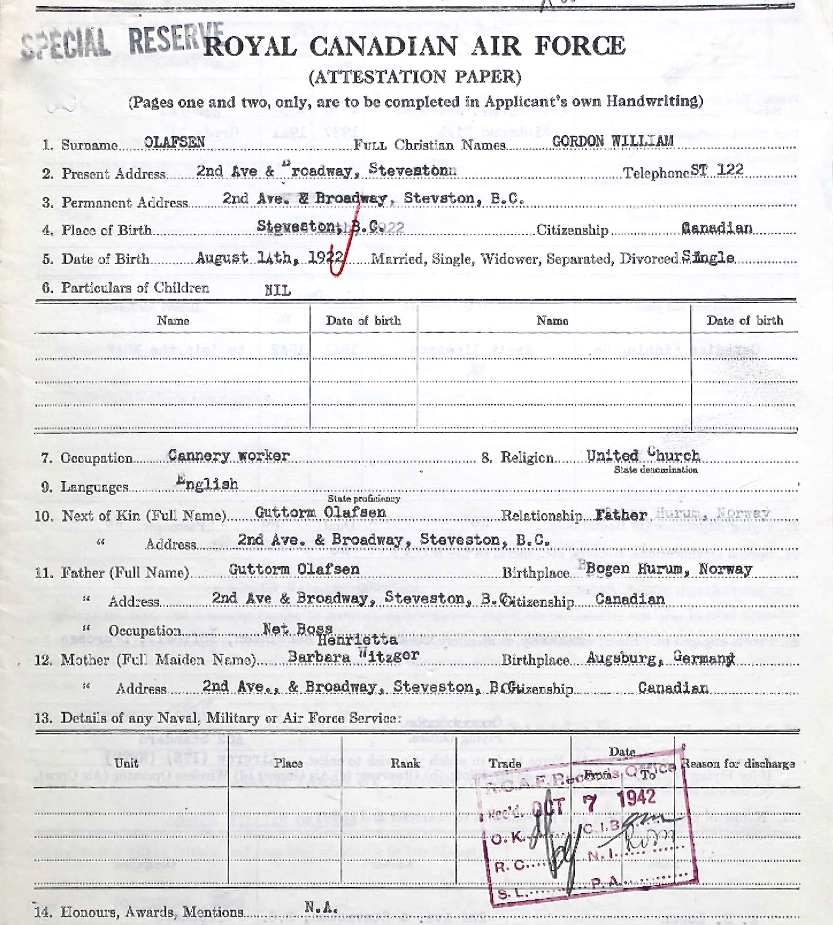 SPECIAL RESERVE
ROYAL CANADIAN AIR FORCE
(ATTESTATION PAPER)
(Pages one and two, only, are to be completed in Applicant's own Handwriting)
1. Surname OLAFSEN Full Christian Names GORDON WILLIAM
2. Present Address 2nd Ave & Broadway, Stevestonn Telephone ST 122
3. Permanent Address 2nd Ave. & Broadway, Stevston, B.C.
4. Place of Birth Steveston, B.C. Citizenship Canadian
5. Date of Birth August 14th, 1922 Married, Single, Widower, Separated, Divorced Single
6. Particulars of Children NIL
Name Date of birth Name Date of birth
7. Occupation Cannery worker 8. Religion United Church
State denomination
9. Languages English
State proficiency
10. Next of Kin (Full Name) Guttorm Olafsen Relationship Father Hurum, Norway
" Address 2nd Ave. & Broadway, Steveston, B.C.
11. Father (Full Name) Guttorm Olafsen Birthplace Bogen Hurum, Norway
" Address 2nd Ave & Broadway, Steveston, B.C. Citizenship Canadian
" Occupation Net Boss
Henrietta
12. Mother (Full Maiden Name) Barbara Witzger Birthplace Augsburg, Germany
" Address 2nd Ave., & Broadway, Steveston, B.C. Citizenship Canadian
13. Details of any Naval, Military or Air Force Service:
Unit Place Rank Trade Date From To Reason for discharge
R.C.A.F. Records Office
Rec'd. OCT 7 1942
O.K. C.I.B.
R.C. N.I.
S.L. P.A.
14. Honours, Awards, Mentions N.A.